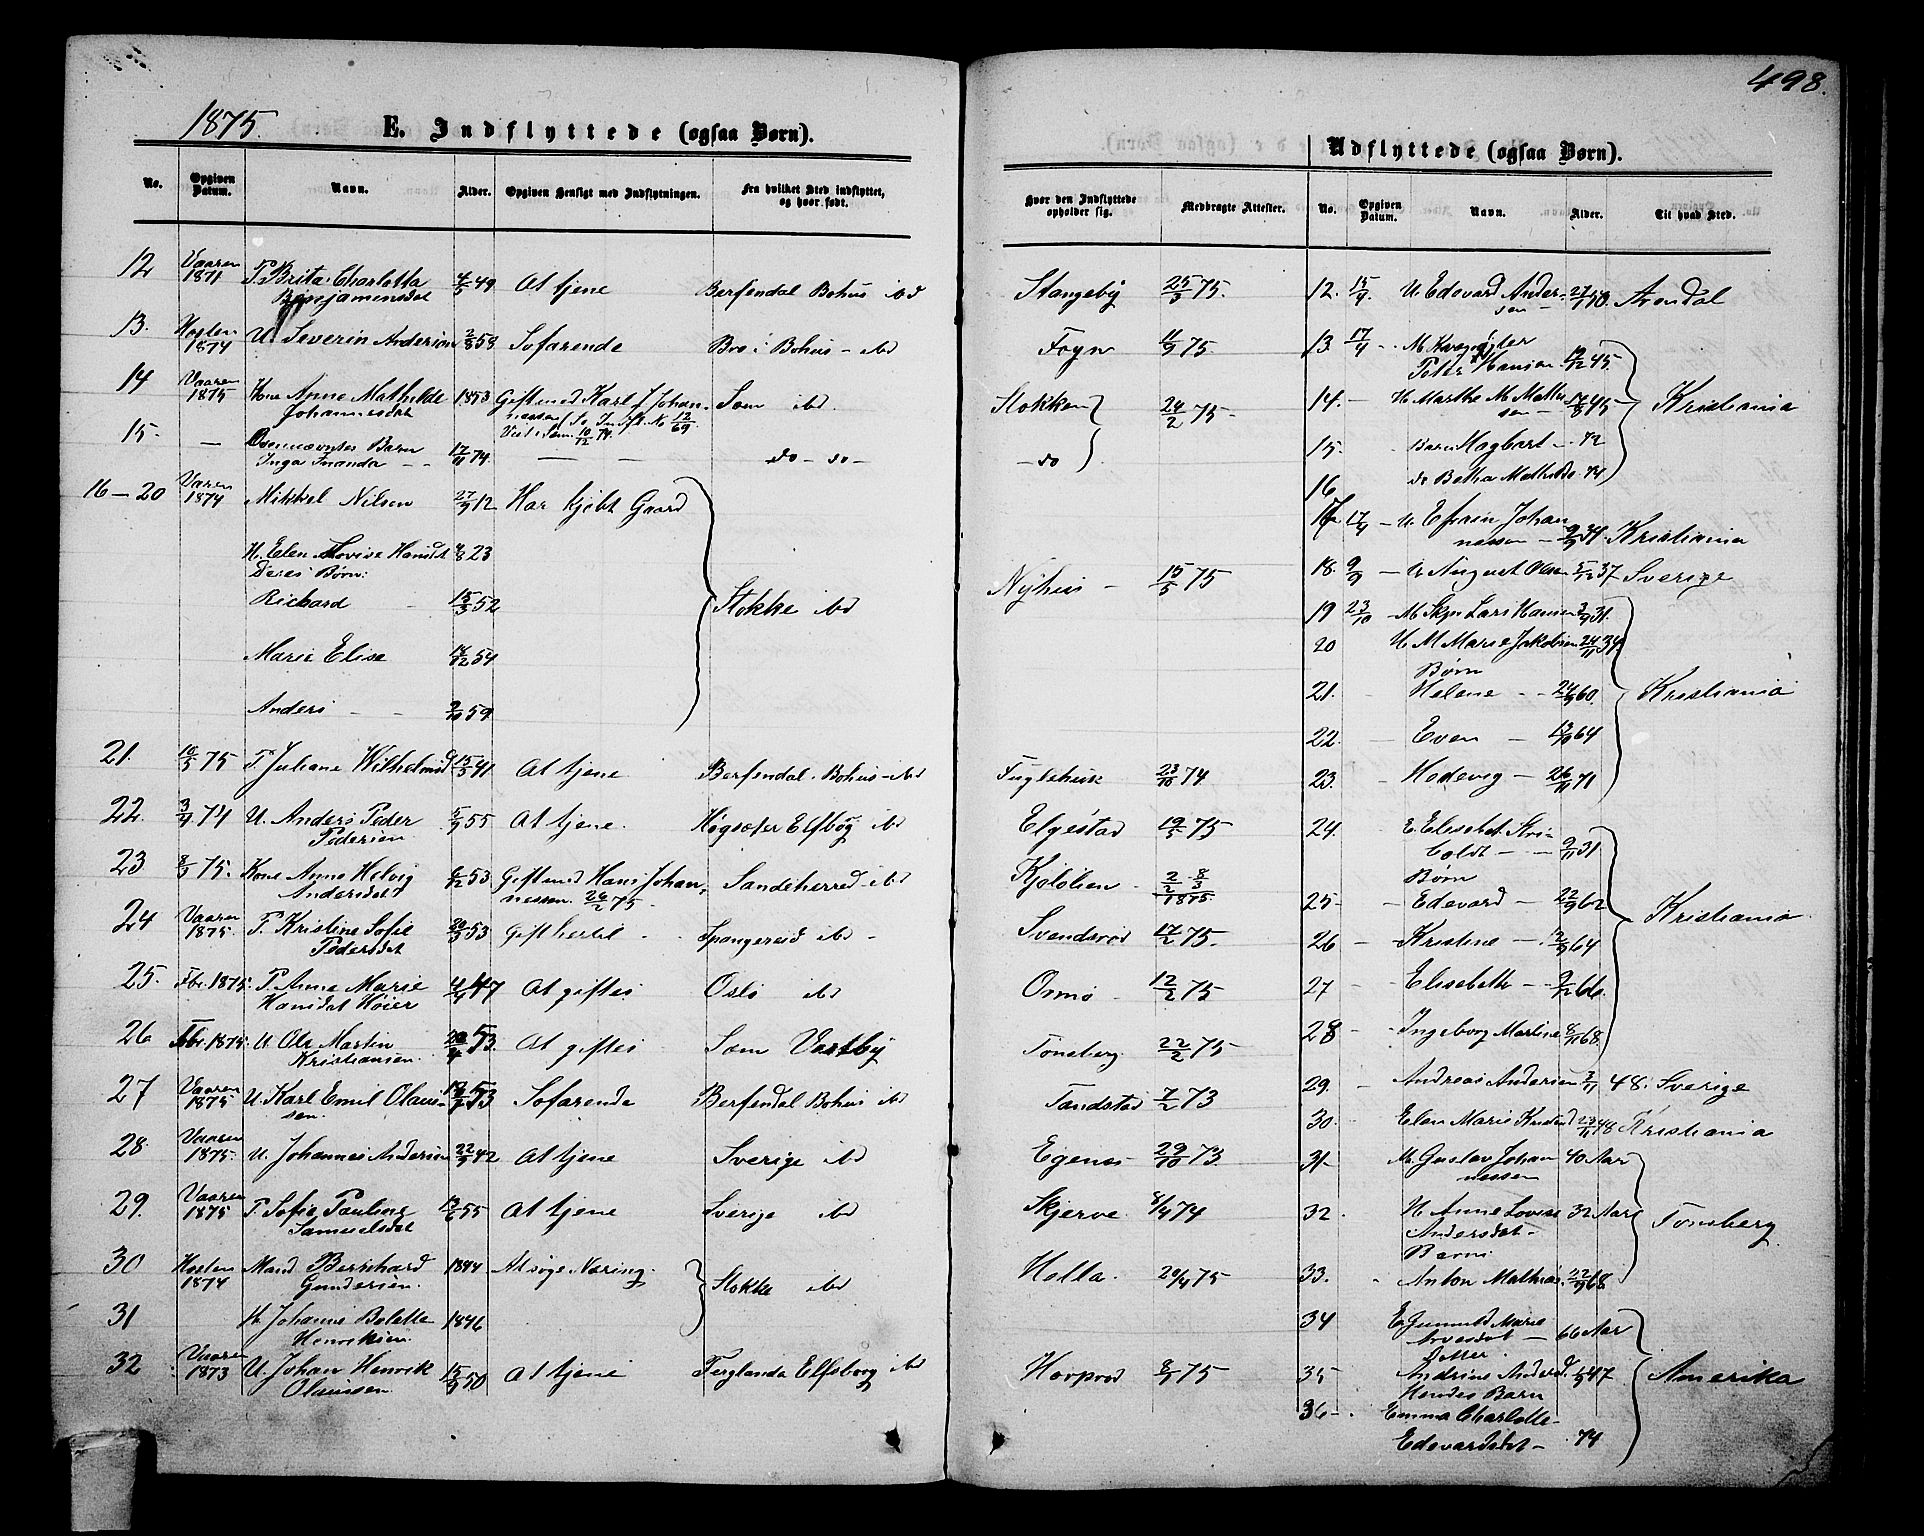 498.
1875.
E. Indflyttede (ogsaa Børn).
Udflyttede (ogsaa Børn).
No. Opgiven Datum. Navn. Alder. Opgiven Hensigt med Indflytningen. Fra hvilket Sted indflyttet, og hvor født.
Hvor den Indflyttede opholder sig. Medbragte Attester. No. Opgiven Datum. Navn. Alder. Til hvad Sted.
12 Vaaren 1871 P. Brita Charlotta Benjaminsdat 4/5 49 At tjene Berfendal Bohus ibd Stangeby 25/3 75.
13. Høsten 1874 U. Severin Andersen 2/8 58 Søfarende Bro i Bohus - ibd Foyn 11/9 75.
14 Vaaren 1875 Kone Anne Mathilde Johannesdat 1853 Gift med Karl J Johannessen Se Indfl. No 12/69. Viet i Sem. 10/12 74. Sem ibd. Stokken 24/2 75-
15. — Ovennævntes Barn Inga Amanda - - 17/11 74. — — do - do - - do
16-20 Vaaren 1874 Mikkel Nilsen 27/9 12 Har kjøbt Gaard Stokke ibd Nyhus - 15/5 75
H. Elen Lovise Hansdt 4/8 23
Deres Børn:
Richard 15/3 52
Marie Elise 14/12 54
Anders - - 9/10 59
21. 10/5 75 P. Juliane Wilhelmsd 15/5 41 At tjene Berfendal. Bohus - ibd Fuglehuk 23/10 74
22. 3/4 74 U. Anders Peder Pedersen 5/9 55 At tjene. Høgsæter Elfsbog ibd Elgestad 19/5 75
23 8/3 75. Kone Anne Helvig Andersdat 6/12 53 Gift med Hans Johannessen. 26/2 75- Sandeherred - ibd Kjølølien - 2/2 8/3 1875.
24 Vaaren 1875. P. Kristine Sofie Pedersdat 20/3 53 Gift hertil - Spangereid ibd - Svendsrød 17/2 75.
25. Fbr. 1875. P. Anne Marie Hansdat Høier 4/4 47 At giftes Oslo ibd Ormø - 12/2 75
26 Fbr. 1875. U. Ole Martin Kristiansen 20/4 53. At giftes Sem Vestby Tønsberg. 22/2 75
27 Vaaren 1875 U. Karl Emil Olaussen. 53 Søfarende Berfendal Bohus ibd Tandstad 7/2 73
28. Vaaren 1875. U. Johannes Andersen 22/9 42 At tjene Sverige ibd Egenes - 29/10 73.
29. Vaaren 1875 P. Sofie Pauline Samuelsdat 13/6 55 At tjene Sverige ibd Skjerve 8/4 74
30 Høsten 1874 Mand Bernhard Gundersen. 1844 At søge Næring. Stokke ibd Holla. 29/4 75
31 H. Johanne Bolette Henriksen. 1846
32 Vaaren 1873 U. Johan Henrik Olaussen 15/9 50 At tjene Ferglanda Elfsborg ibd Hovprød 8/7 75
12. 15/9. U. Edevard Andersen - 27/1 50. Arendal
13 17/4 - M. Peter Hansen 19/12 45. Kristiania
14. - H. Marthe M. Mathisen - 17/8 45
15. - Barn Hagbart - 72
16. do Betha Mathilde. 74
17 17/4 - U. Efraim Johannessen - 2/9 51. Kristiania
18. 9/9 - U. August Olsen 5/12 37 Sverige
19 23/10 - M. Skpr Lars Hansen 3/9 31. Kristiania
20 H. M. Marie Jakobsen 24/11 34
Børn
21. - Helene - - 24/9 60.
22. - Even - 13/10 64
23. - Hedevig - 26/11 71
24. - E. Elisabet - - 9/11 31 Kristiania
Børn
25 - - Edevard - 22/9 62
26 - - Kristine - 12/9 64
27 - - Elisabeth - - 9/12 66.
28 - - Ingeborg Martine 8/11 68.
29. - Andreas Andersen 3/11 48. Sverige
30. - Elen Marie Knudsd 23/11 48 Kristiania
31. - M. Gustav Johannessen 40 Aar Tønsberg
32. - H. Anne Lovise Andersdat - 32 Aar
Barn.
33. - Anton Mathias. 22/9 68
34 E. Gunnild Marie - 66 Aar Amerika
Datter.
35 - Andrine Andersd. 47
Hendes Barn
36 - Emma Charlotte Edevardsdat - . 74